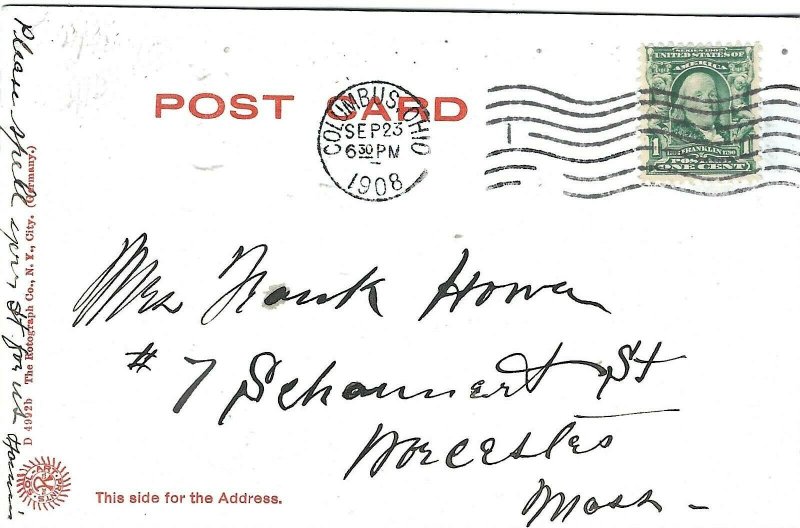 POST CARD
COLUMBUS, OHIO
SEP 23
6 30 PM
1908
SERIES 1902
UNITED STATES OF
AMERICA
FRANKLIN
1 POSTAGE 1
ONE CENT
Mrs Frank Howe
# 7 Schaunert St
Worcester
Mass -
This side for the Address.
Please spell your St for us
D 4992b The Rotograph Co., N. Y., City. (Germany.)
SOL-ART PRINTS